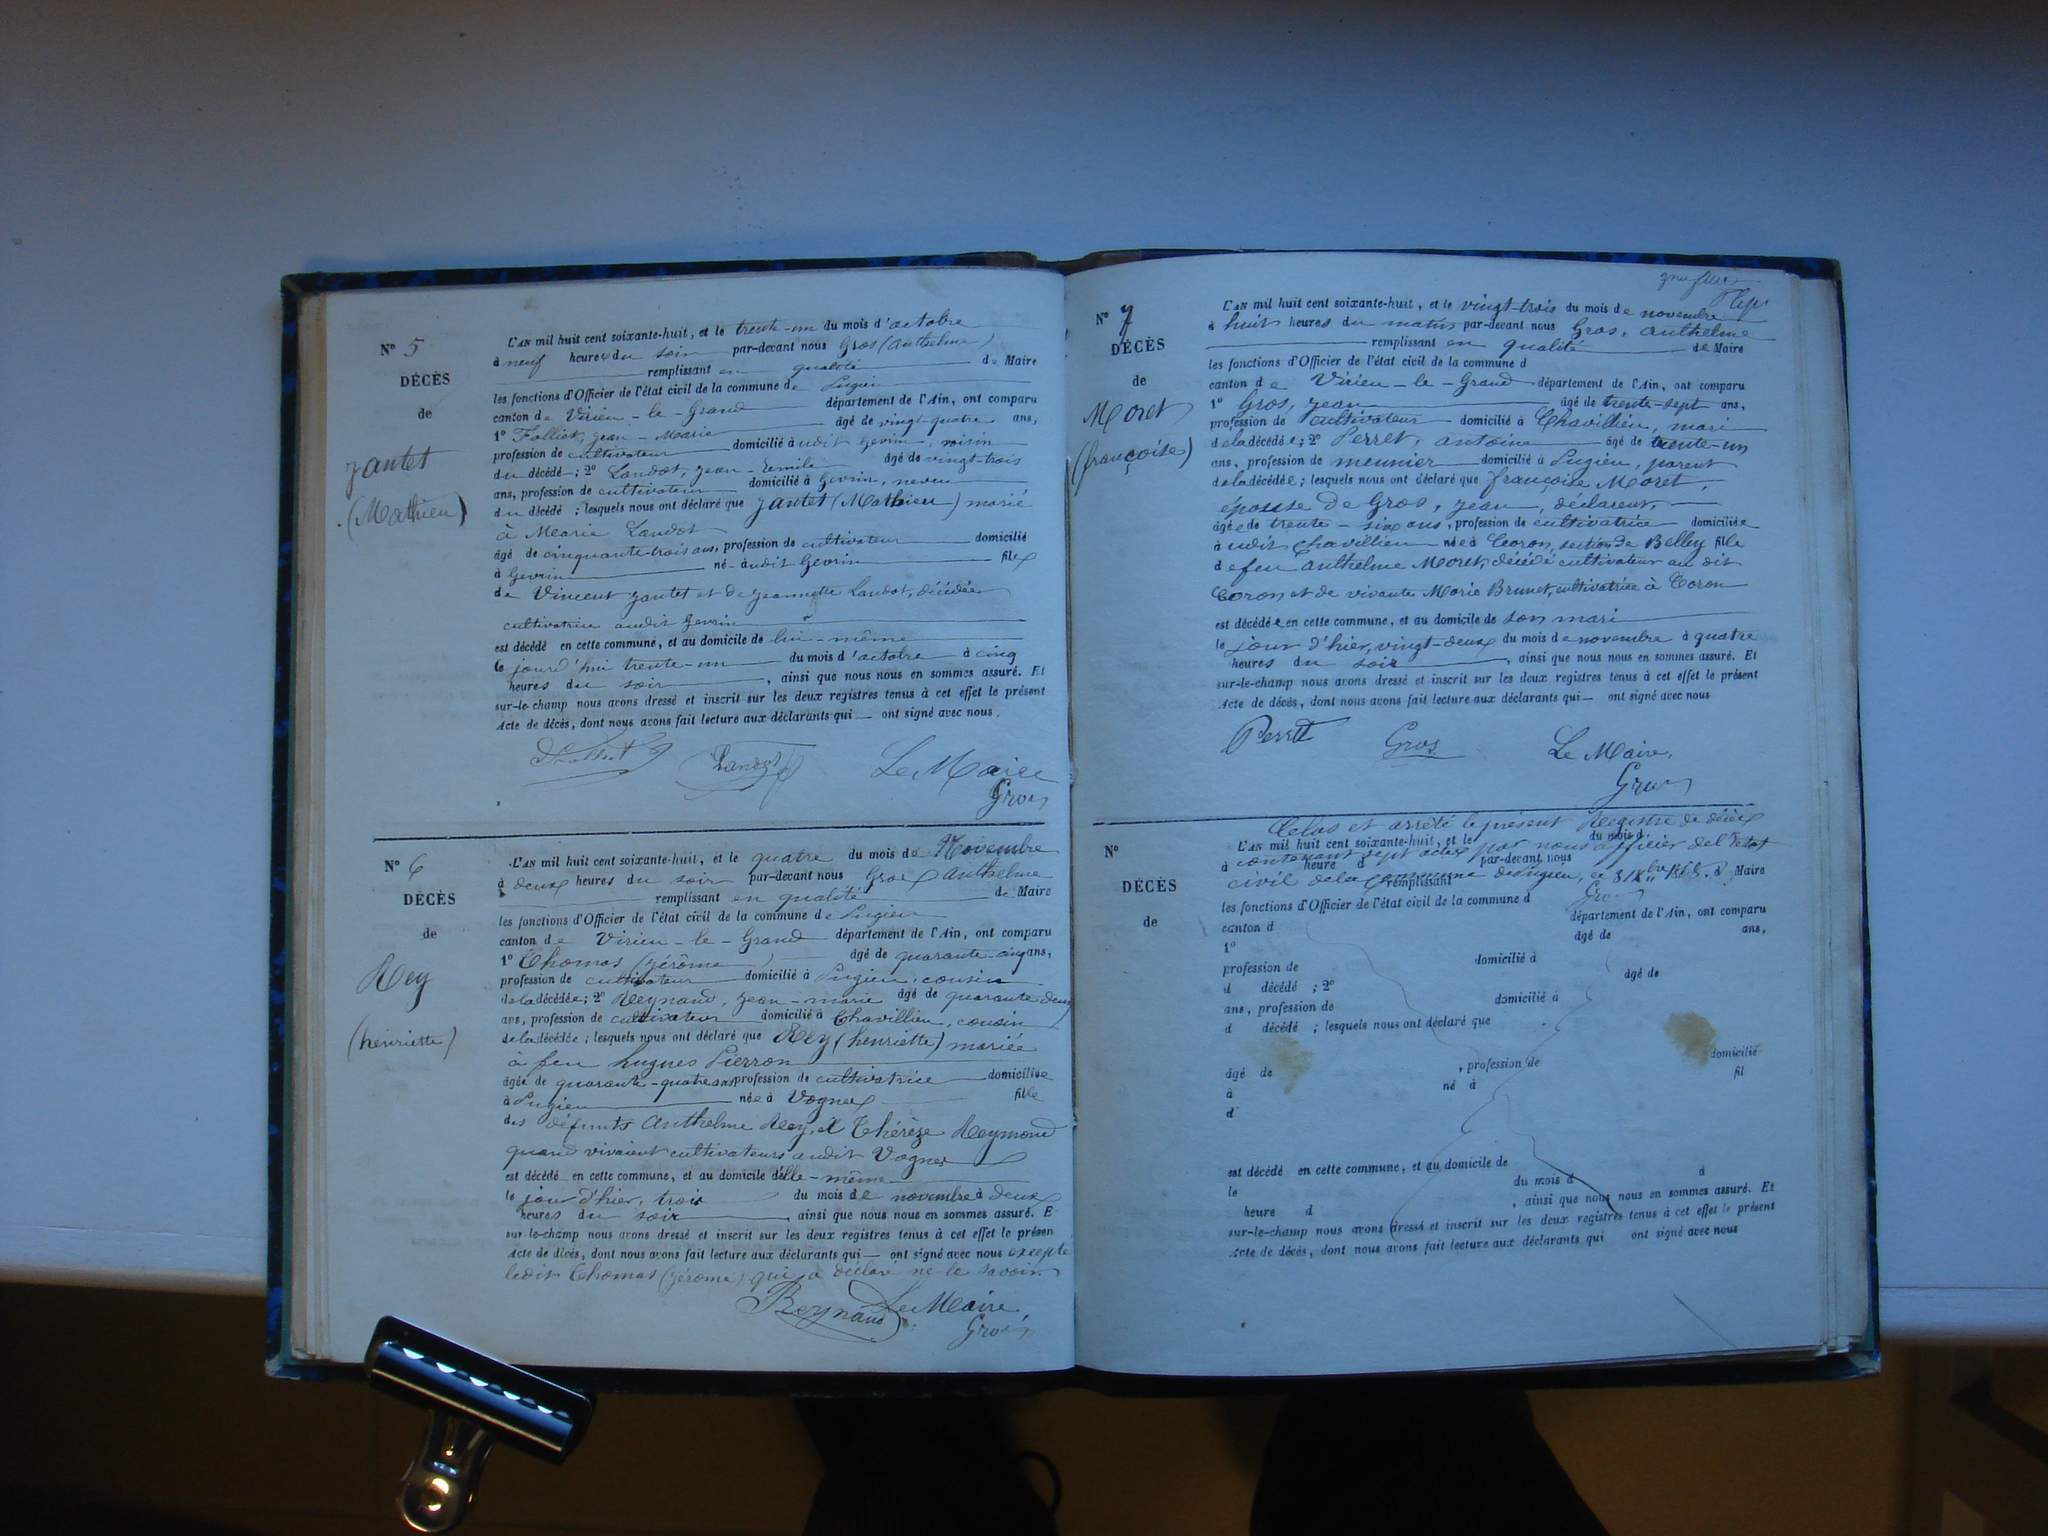 N° 5
DÉCÈS
de
Jantet
(Mathieu)
L'AN mil huit cent soixante-huit, et le trente-un du mois d'octobre
à neuf heures du soir par-devant nous Gros (Anthelme)
remplissant en qualité de Maire
les fonctions d'Officier de l'état civil de la commune de Pugieu
canton de Virieu-le-Grand département de l'Ain, ont comparu
1° Folliet, Jean-Marie âgé de vingt-quatre ans,
profession de cultivateur domicilié à udit Gevrin, voisin
du décédé ; 2° Landot, Jean-Emile âgé de vingt-trois
ans, profession de cultivateur domicilié à Gevrin, neveu
du décédé ; lesquels nous ont déclaré que Jantet (Mathieu) marié
à Marie Landot
âgé de cinquante-trois ans, profession de cultivateur domicilié
à Gevrin né à udit Gevrin fils
de Vincent Jantet et de Jeannette Landot, décédée
cultivatrice audit Gevrin
est décédé en cette commune, et au domicile de lui-même
le jourd'hui trente-un du mois d'octobre à cinq
heures du soir, ainsi que nous nous en sommes assuré. Et
sur-le-champ nous avons dressé et inscrit sur les deux registres tenus à cet effet le présent
Acte de décès, dont nous avons fait lecture aux déclarants qui — ont signé avec nous.
Landot Le Maire
Gros
N° 6
DÉCÈS
de
Rey
(henriette)
L'AN mil huit cent soixante-huit, et le quatre du mois de Novembre
à deux heures du soir par-devant nous Gros Anthelme
remplissant en qualité de Maire
les fonctions d'Officier de l'état civil de la commune de Pugieu
canton de Virieu-le-Grand département de l'Ain, ont comparu
1° Thomas (jérôme) âgé de quarante-cinq ans,
profession de cultivateur domicilié à Pugieu, cousin
de la décédée ; 2° Reynaud, Jean-marie âgé de quarante deux
ans, profession de cultivateur domicilié à Chavillieu, cousin
de la décédée ; lesquels nous ont déclaré que Rey (henriette) mariée
à feu hugues Pierron
âgée de quarante-quatre ans profession de cultivatrice domiciliée
à Pugieu née à Vognes fille
des défunts Anthelme Rey et Thérèze Reymond
quand vivaient cultivateurs audit Vognes
est décédé en cette commune, et au domicile d'elle-même
le jour d'hier, trois du mois de novembre à deux
heures du soir, ainsi que nous nous en sommes assuré. E
sur-le-champ nous avons dressé et inscrit sur les deux registres tenus à cet effet le présen
Acte de décès, dont nous avons fait lecture aux déclarants qui — ont signé avec nous excepté
ledit Thomas (jérome) qui a déclaré ne le savoir.
Reynaud Le Maire
Gros
N° 7
DÉCÈS
de
Moret
(françoise)
L'AN mil huit cent soixante-huit, et le vingt-trois du mois de novembre
à huit heures du matin par-devant nous Gros, Anthelme
remplissant en qualité de Maire
les fonctions d'Officier de l'état civil de la commune d
canton de Virieu-le-Grand département de l'Ain, ont comparu
1° Gros, Jean âgé de trente-sept ans,
profession de cultivateur domicilié à Chavillieu, mari
de la décédée ; 2° Perret, antoine âgé de trente-un
ans, profession de meunier domicilié à Pugieu, parent
de la décédée ; lesquels nous ont déclaré que françoise Moret,
épouse de Gros, Jean, déclarent,
âgée de trente-six ans, profession de cultivatrice domiciliée
à udit Chavillieu née à Coron, section de Belley fille
de feu Anthelme Moret, décédé cultivateur au dit
Coron et de vivante Marie Brunet, cultivatrice à Coron
est décédée en cette commune, et au domicile de son mari
le jour d'hier, vingt-deux du mois de novembre à quatre
heures du soir, ainsi que nous nous en sommes assuré. Et
sur-le-champ nous avons dressé et inscrit sur les deux registres tenus à cet effet le présent
Acte de décès, dont nous avons fait lecture aux déclarants qui — ont signé avec nous
Perret Gros Le Maire,
Gros
Clos et arrêté le présent Registre de décès
contenant sept actes par nous officier de l'Etat
civil de la Commune de Pugieu, ce 31 Xbre 1868.
Gros
N°
DÉCÈS
de
L'AN mil huit cent soixante-huit, et le du mois d
à heure d par-devant nous
remplissant Maire
les fonctions d'Officier de l'état civil de la commune d
canton d département de l'Ain, ont comparu
1° âgé de ans,
profession de domicilié à
d décédé ; 2° âgé de
ans, profession de domicilié à
d décédé ; lesquels nous ont déclaré que
âgé de , profession de domicilié
à né à fil
d
est décédé en cette commune, et au domicile de
le du mois d à
heure d , ainsi que nous nous en sommes assuré. Et
sur-le-champ nous avons dressé et inscrit sur les deux registres tenus à cet effet le présent
Acte de décès, dont nous avons fait lecture aux déclarants qui ont signé avec nous